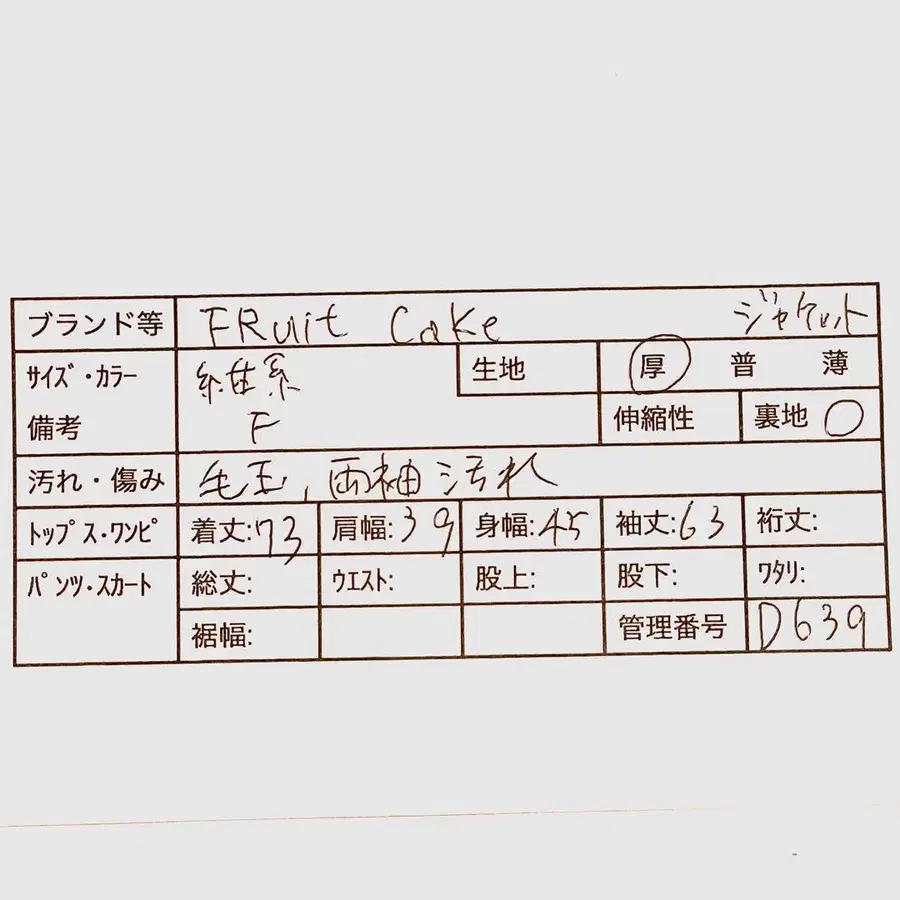 ブランド等 FRuit Cake ジャケット
サイズ・カラー 紺系 生地 厚 普 薄
備考 F 伸縮性 裏地 ○
汚れ・傷み 毛玉, 両袖汚れ
トップス・ワンピ 着丈:73 肩幅:39 身幅:45 袖丈:63 裄丈:
パンツ・スカート 総丈: ウエスト: 股上: 股下: ワタリ:
裾幅: 管理番号 D639